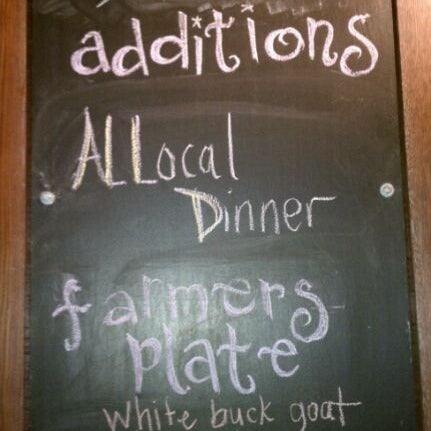 additions
ALLocal
Dinner
farmers
plate
white buck goat